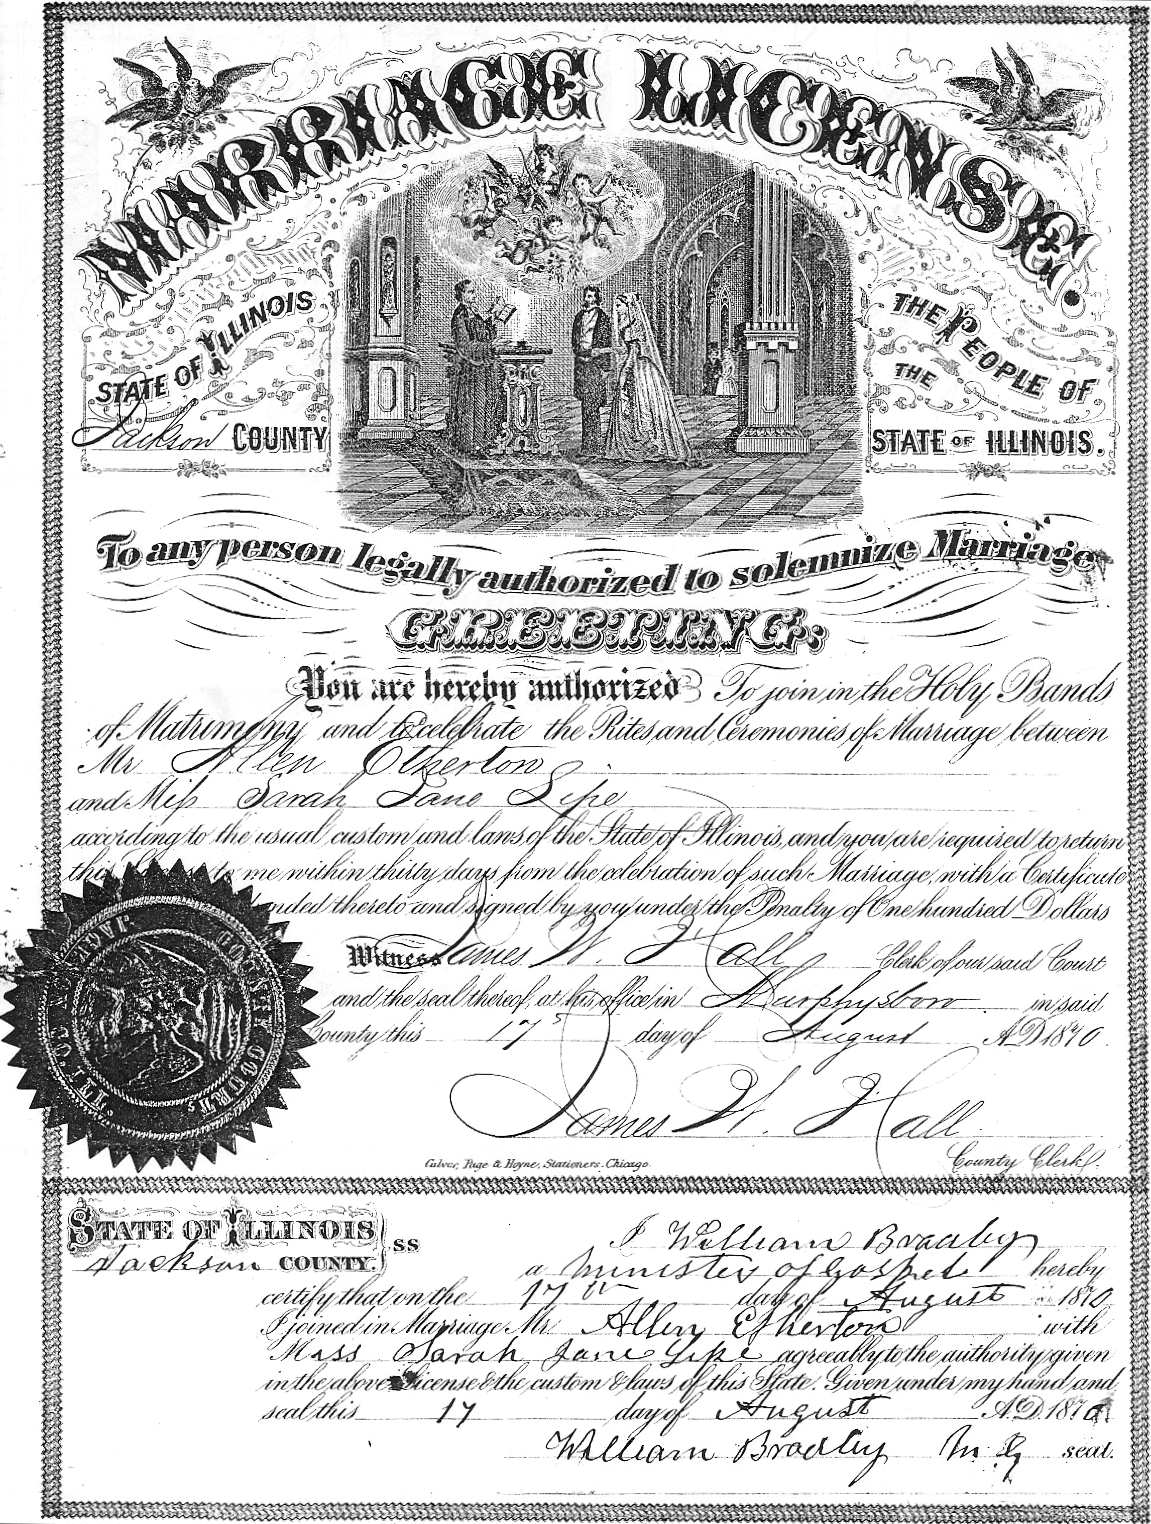 MARRIAGE LICENSE.
STATE OF ILLINOIS
Jackson COUNTY
THE PEOPLE OF
THE
STATE OF ILLINOIS.
To any person legally authorized to solemnize Marriage
GREETING:
You are hereby authorized To join in the Holy Bands
of Matrimony and to celebrate the Rites and Ceremonies of Marriage between
Mr Allen Etherton
and Miss Sarah Jane Lipe
according to the usual custom and laws of the State of Illinois, and you are required to return
this to me within thirty days from the celebration of such Marriage, with a Certificate
nded thereto and signed by you under the Penalty of One hundred Dollars
Witness James W. Hall Clerk of our said Court
and the seal thereof, at his office in Murphysboro in said
County this 17th day of August A.D. 1870.
James W. Hall
County Clerk.
Culver, Page & Hoyne, Stationers, Chicago.
STATE OF ILLINOIS
Jackson COUNTY. SS
I William Bradley
a Minister of Gospel hereby
certify that on the 17th day of August 1870
I joined in Marriage Mr. Allen Etherton with
Miss Sarah Jane Lipe agreeably to the authority given
in the above License & the custom & laws of this State. Given under my hand and
seal this 17 day of August A.D. 1870
William Bradley M. G. seal.